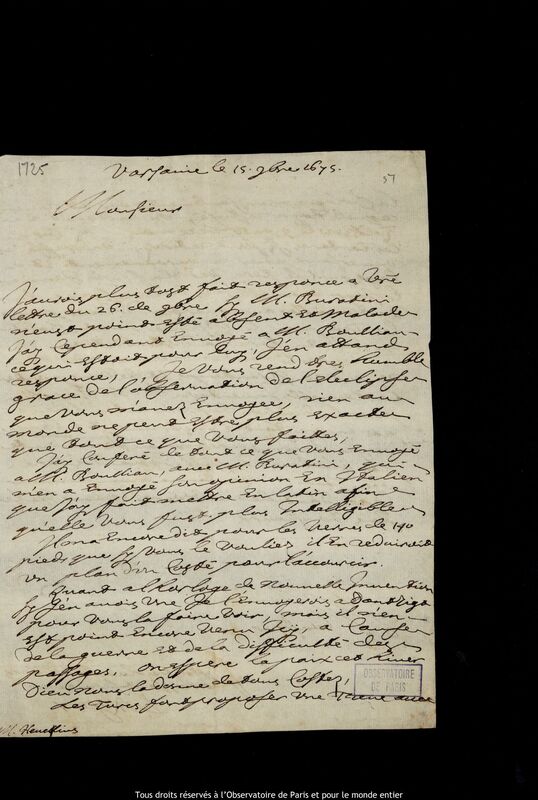 1725
Varsavie le 15. 9bre 1675.
57
Monsieur
J'aurois plus tost fait responce a Vre
lettre du 26. de 9bre sy M. Buratini
n'eust point esté absent et Malade
J'ay cependant Envoyé a M. Boulliau
ce qui estoit pour luy, J'en attands
responce, Je Vous rend tres humble
grace de l'observation de l'Ecclipse
que Vous m'avez Envoyée, rien au
monde ne peut estre plus exacte
que tout ce que Vous faittes,
J'ay Conferé de tout ce que Vous Envoyé
a M. Boulliau, avec M. Buratini, qui
m'en a Envoyé son opinion En Italien
que J'ay fait mettre En latin afin
qu'elle Vous fust plus Intelligible
Il m'a Encore dit pour les Verres de 140
pieds que sy Vous le Vouliez il En reduiroit
un plan d'un Costé pour l'accourcir.
Quant a l'horloge de Nouvelle Invention
sy J'en avois Une Je l'envoyerois a Dantzigt
pour Vous la faire Voir mais il n'en
est point Encore Venu Icy a Cause
de la guerre et de la difficulté des
passages. on espere la paix cet hiver
Dieu nous la donne de tous Costez,
Les Turcs font proposer Une avec
M. Hevelius
OBSERVATOIRE
DE PARIS
Tous droits réservés à l'Observatoire de Paris et pour le monde entier